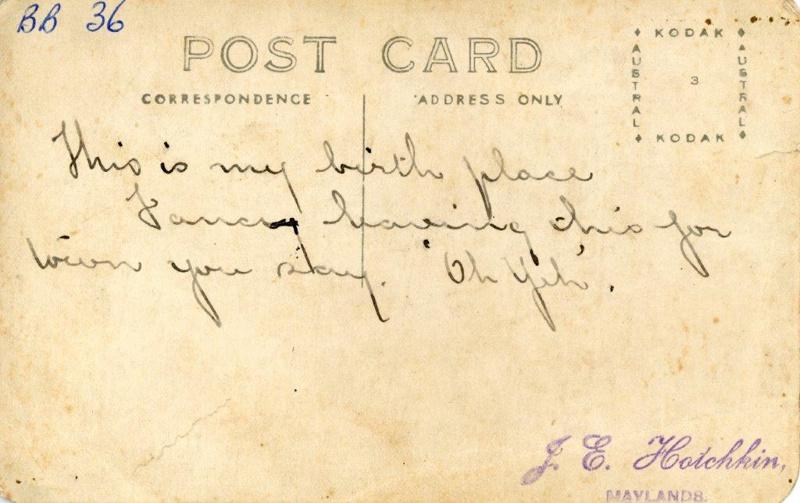 BB 36
POST CARD
CORRESPONDENCE
ADDRESS ONLY
KODAK
AUSTRAL
3
AUSTRAL
KODAK
This is my birth place
Fancy leaving this for
town you say. 'Oh Yeh'.
J. E. Hotchkin,
MAYLANDS.